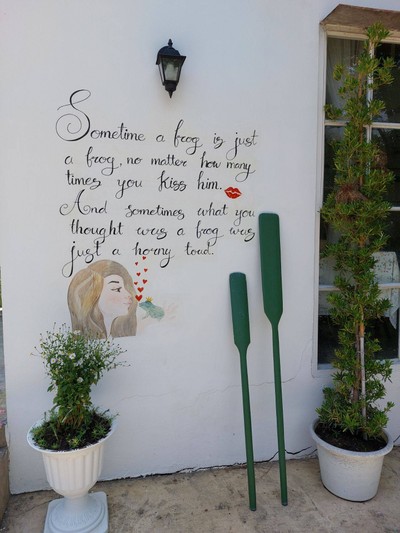 Sometime a frog is just
a frog, no matter how many
times you kiss him.
And sometimes what you
thought was a frog was
just a horny toad..